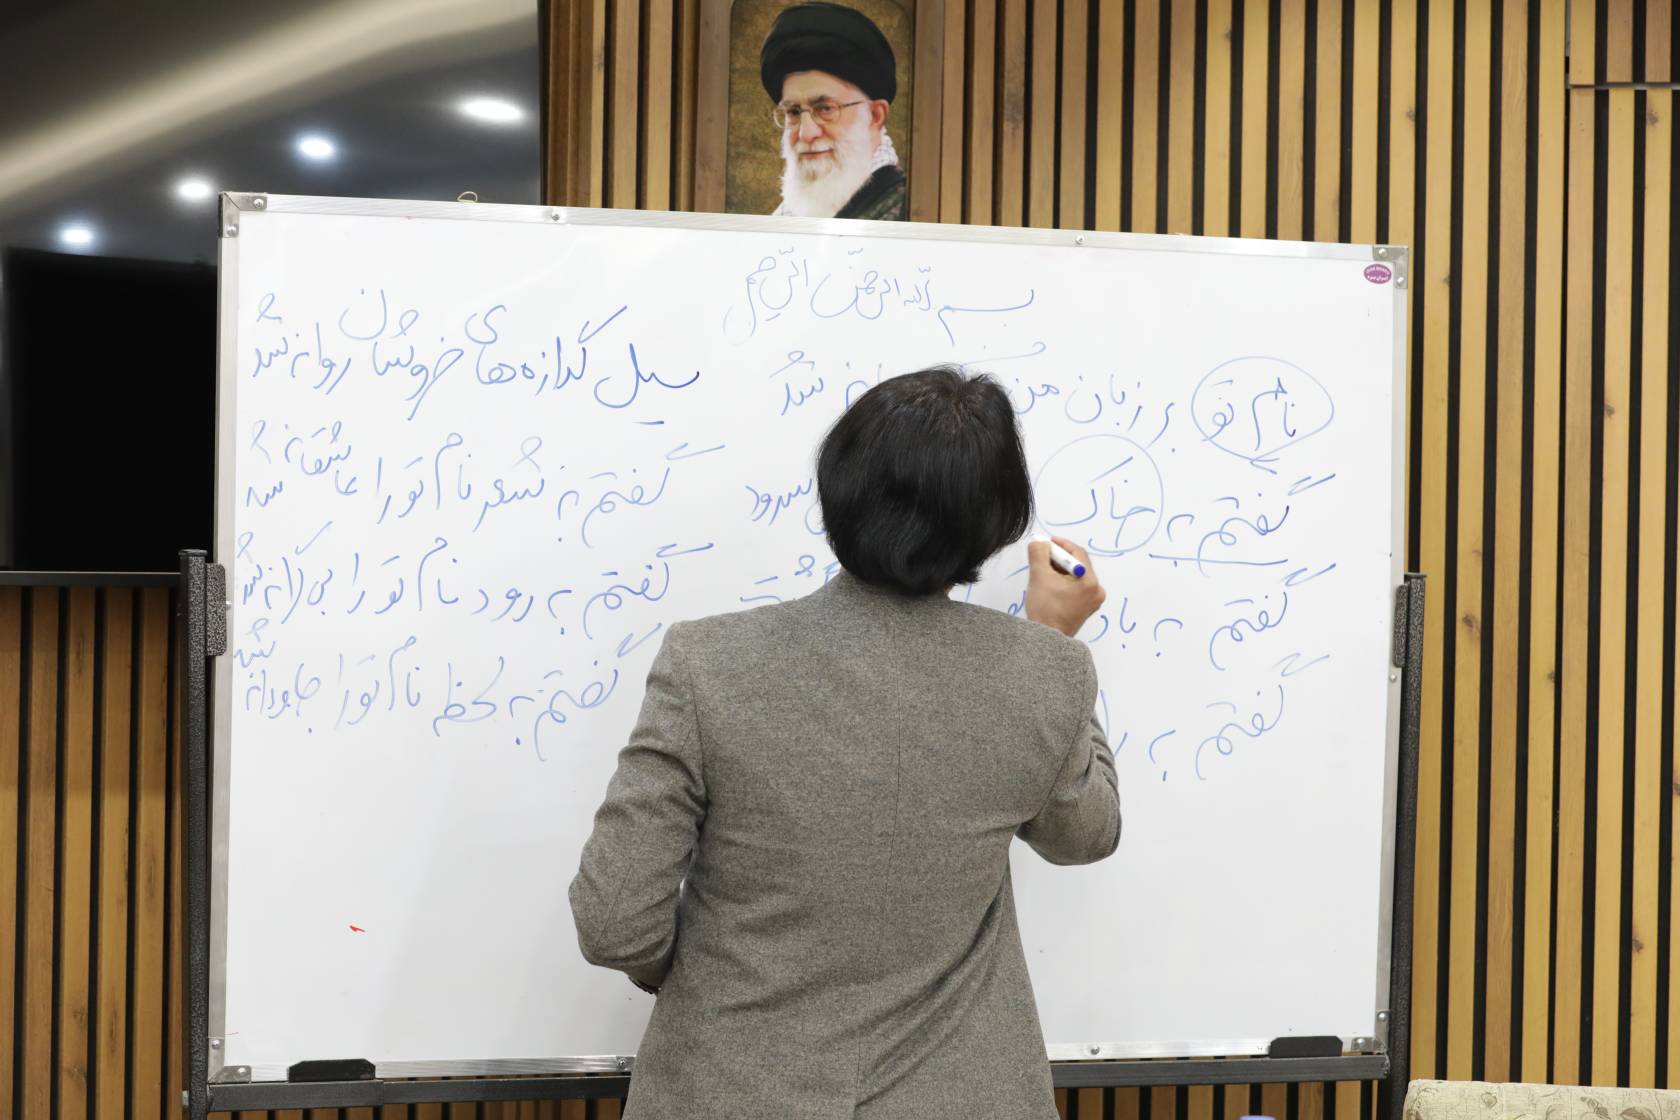 بسم الله الرحمن الرحیم
نام تو بر زبان من شد
سیل گدازه های خروشان روانه شد
گفتم به خاک سرود
گفتم به شعر نام تو را عاشقانه شد
گفتم به باد
گفتم به رود نام تو را بی کرانه شد
گفتم به
گفتم به لحظه نام تو را جاودانه شد